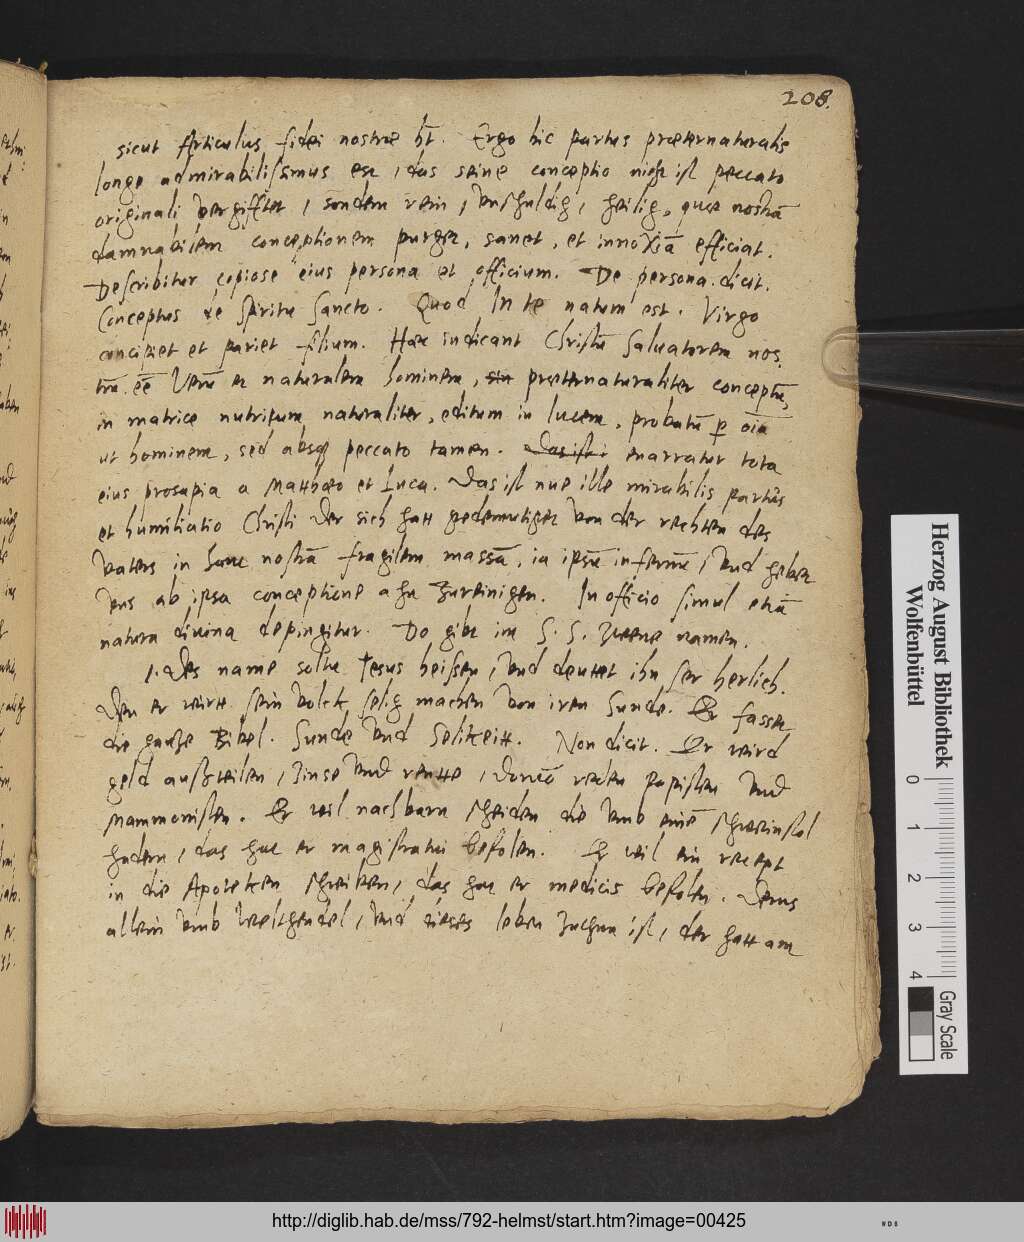 208.
sicut Articulus fidei nostrae hēt. Ergo hic partus praeternaturalis
longe admirabilissimus est, das seine conceptio nicht ist peccato
originali vergifftet, sondern rein, unschuldig, heilig, quae nostrā
damnabilem conceptionem purget, sanet, et innoxiā efficiat.
Describitur copiose eius persona et officium. De persona dicit.
Conceptus de Spiritu Sancto. Quod In te natum est. Virgo
concipiet et pariet filium. Haec indicant Christū Salvatorem nos
trū eē verū et naturalem hominem, praeternaturaliter conceptū,
in matrice nutritum naturaliter, editum in lucem, probatū per oīa
ut hominem, sed absque peccato tamen. Das ist enarratur tota
eius prosapia a Matthaeo et Luca. Das ist nue ille mirabilis partus
et humiliatio Christi der sich hatt gedemutiget von der rechten des
vaters in hanc nostrā fragilem massā, in ipsū infernū, und hebet
uns ab ipsa conceptione ahn zureinigen. In officio simul etiā
natura divina depingitur. Do gibt im S. S. zweene namen.
1. Des name soltu Jesus heissen, und deuttet ihn ser herlich.
Den er wirtt sein volck selig machen von iren Sunde. Er fasset
die gantze Bibel. Sunde und Selikeitt. Non dicit. Er wird
geld aussteilen, Zinse und rentte, Papisten und
Mammonisten. Er wil nachbarn scheiden die umb eine
hadern, das hat er magistratui befolen. Er wil ein recept
in die Apoteken schreiben, das hat er medicis befolen. Denns
allein umb welthendel, und dieses leben zuthun ist, der hatt am
Herzog August Bibliothek
Wolfenbüttel
0 1 2 3 4
Gray Scale
http://diglib.hab.de/mss/792-helmst/start.htm?image=00425